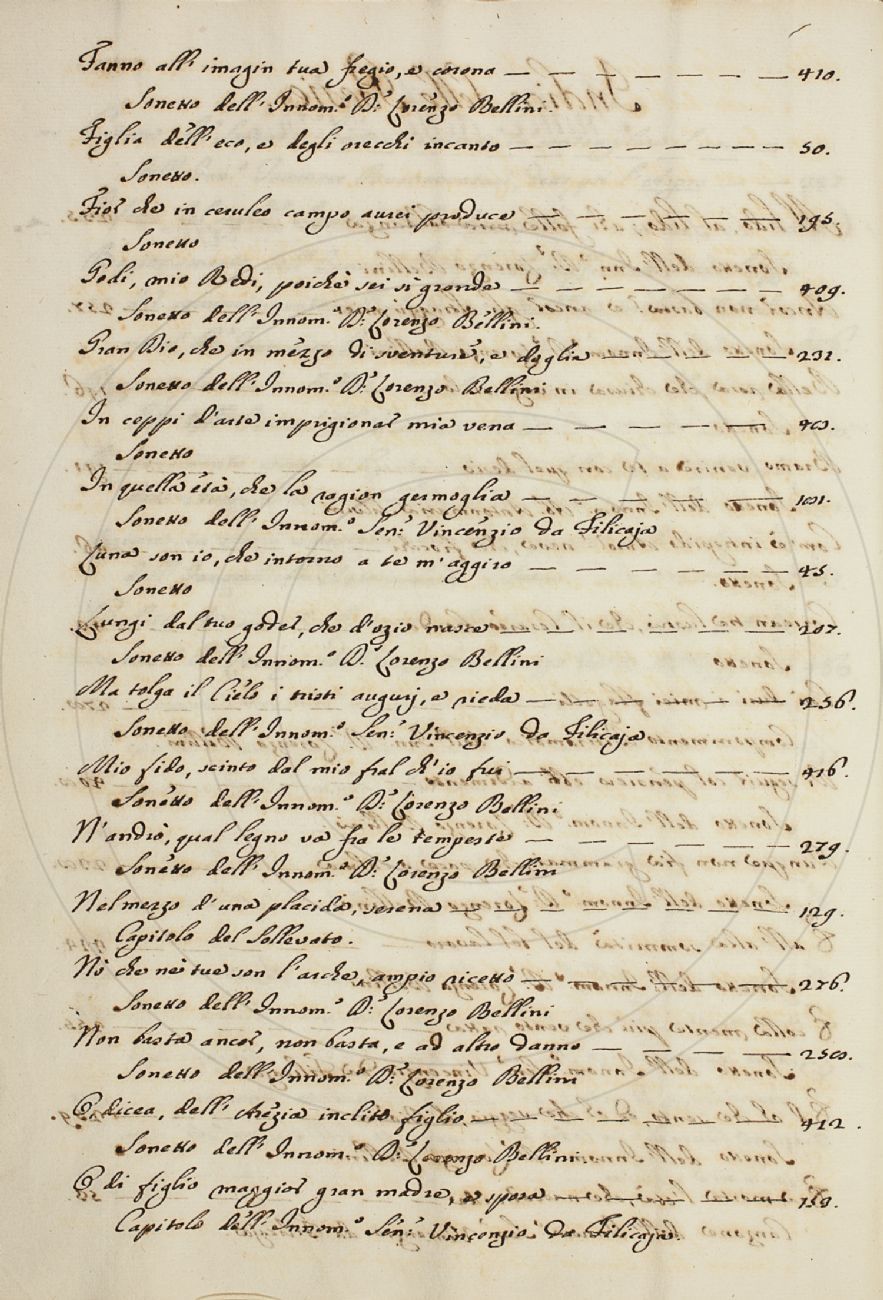 Fanno all' imagin tua fregio, e corona — — — — — — — — 410.
Sonetto dell' Innom.º D.r Lorenzo Bellini.
Figlia dell' eco, e degli orecchi incanto — — — — — — — — 50.
Sonetto.
Fior che in ceruleo campo aurei produce — — — — — — — 195.
Sonetto
Godi, mio Redi, poichè sei sì grande — — — — — — — — 409.
Sonetto dell' Innom.º D.r Lorenzo Bellini.
Gran Dio, che in mezzo di sventure, e doglia — — — — — 231.
Sonetto dell' Innom.º D.r Lorenzo Bellini
In ceppi d'arte imprigionar mia vena — — — — — — 403.
Sonetto
In quella età, che la ragion germoglia — — — — — — 101.
Sonetto dell' Innom.º Sen.r Vincenzio da Filicaja
Luna son io, che intorno a te m'aggiro — — — — — — — — 45.
Sonetto
Lungi dal tuo goder, che d'ozio nasce — — — — — — — — 207.
Sonetto dell' Innom.º D.r Lorenzo Bellini
Ma tolga il Cielo i tristi augurj, e rieda — — — — — — 256.
Sonetto dell' Innom.º Sen.r Vincenzio da Filicaja
Mio fido, scinto dal mio fral ch'io fui — — — — — — — — 416.
Sonetto dell' Innom.º D.r Lorenzo Bellini
N'andrò, qual legno va fra le tempeste — — — — — — — 279.
Sonetto dell' Innom.º D.r Lorenzo Bellini
Nel mezzo d'una placida, serena — — — — — — — — — 129.
Capitolo del Sollevato.
Nò che nei tue son l'arche, ampio ricetto — — — — — — 276.
Sonetto dell' Innom.º D.r Lorenzo Bellini
Non basta ancor, non basta, e ad altro danno — — — — 250.
Sonetto dell' Innom.º D.r Lorenzo Bellini
O dicea, dell' Arezia inclito figlio — — — — — — — — 412.
Sonetto dell' Innom.º D.r Lorenzo Bellini
O di figlio maggior gran madre, e sposa — — — — — —
Capitolo dell' Innom.º Sen.r Vincenzio da Filicaja.